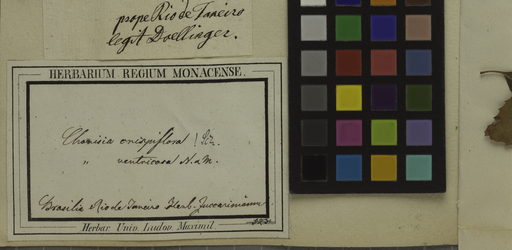 prope Rio de Janeiro
legit Doellinger.
HERBARIUM REGIUM MONACENSE.
Chorisia crispiflora !
" ventricosa N. a M.
Brasilia Rio de Janeiro Herb. Zuccarinianum
Herbar. Univ. Ludov. Maximil.